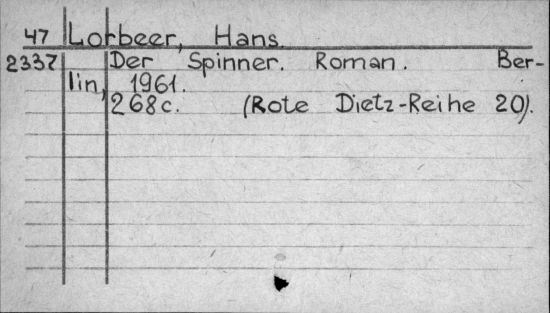 47 Lorbeer, Hans.
2337 Der Spinner. Roman. Ber-
lin, 1961.
268c. (Rote Dietz-Reihe 20).